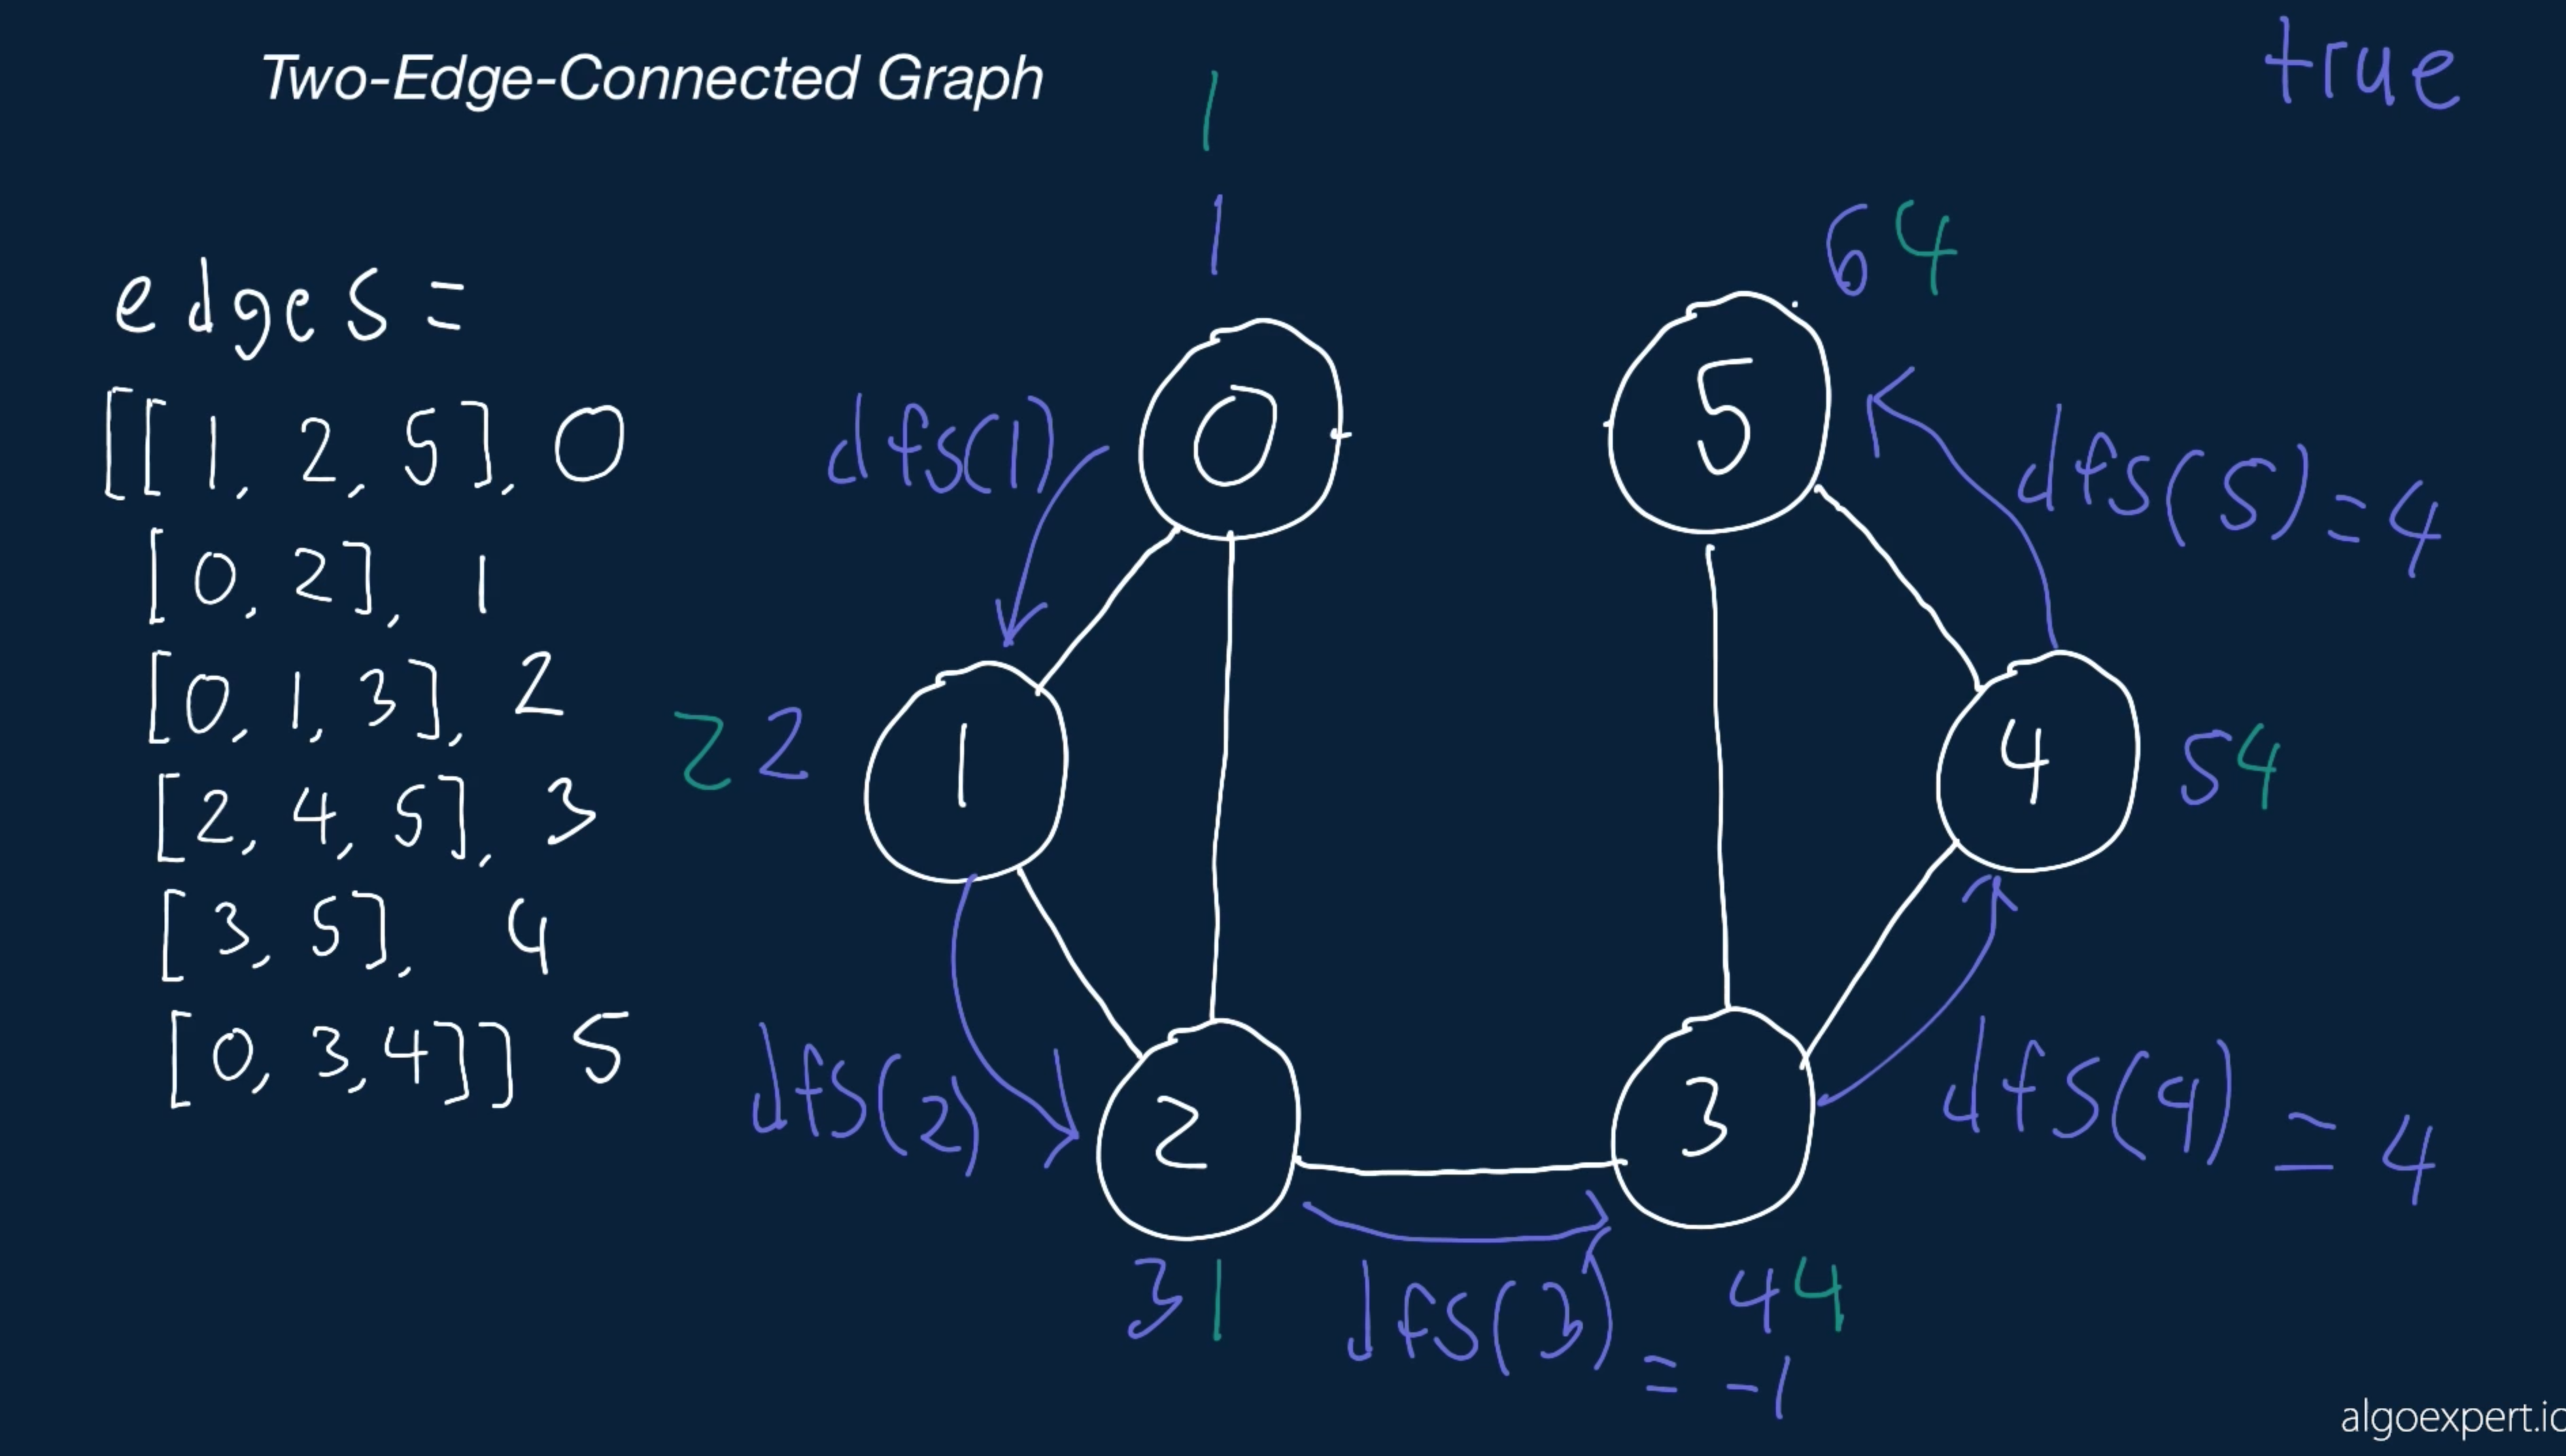 Two-Edge-Connected Graph
true
edges =
[[1, 2, 5], 0
[0, 2], 1
[0, 1, 3], 2
[2, 4, 5], 3
[3, 5], 4
[0, 3, 4]] 5
1
1
0
dfs(1)
2 2
1
dfs(2)
2
3 1
dfs(3)
= -1
3
4 4
dfs(4) = 4
4
5 4
dfs(5) = 4
5
6 4
algoexpert.io